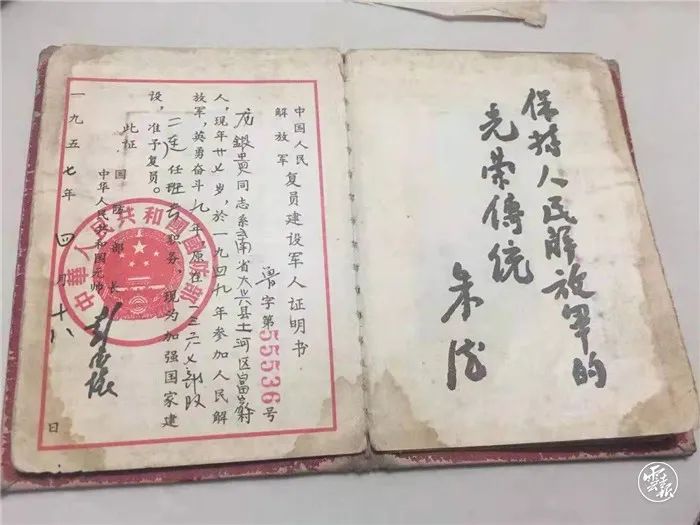 保持人民解放軍的
光荣傳統
朱德
中国人民
解放军
复员建设军人证明书
鲁字第55536号
同志系云南省大兴县土河区富村
人，现年廿七岁，於一九四九年参加人民解
放军，英勇奋斗九年原在一三六七部队
二连任班长职务，现为加强国家建
设，准予复员。
此证
国防部长
中华人民共和国元帅
彭德怀
一九五七年四月十八日
中華人民共和國國防部